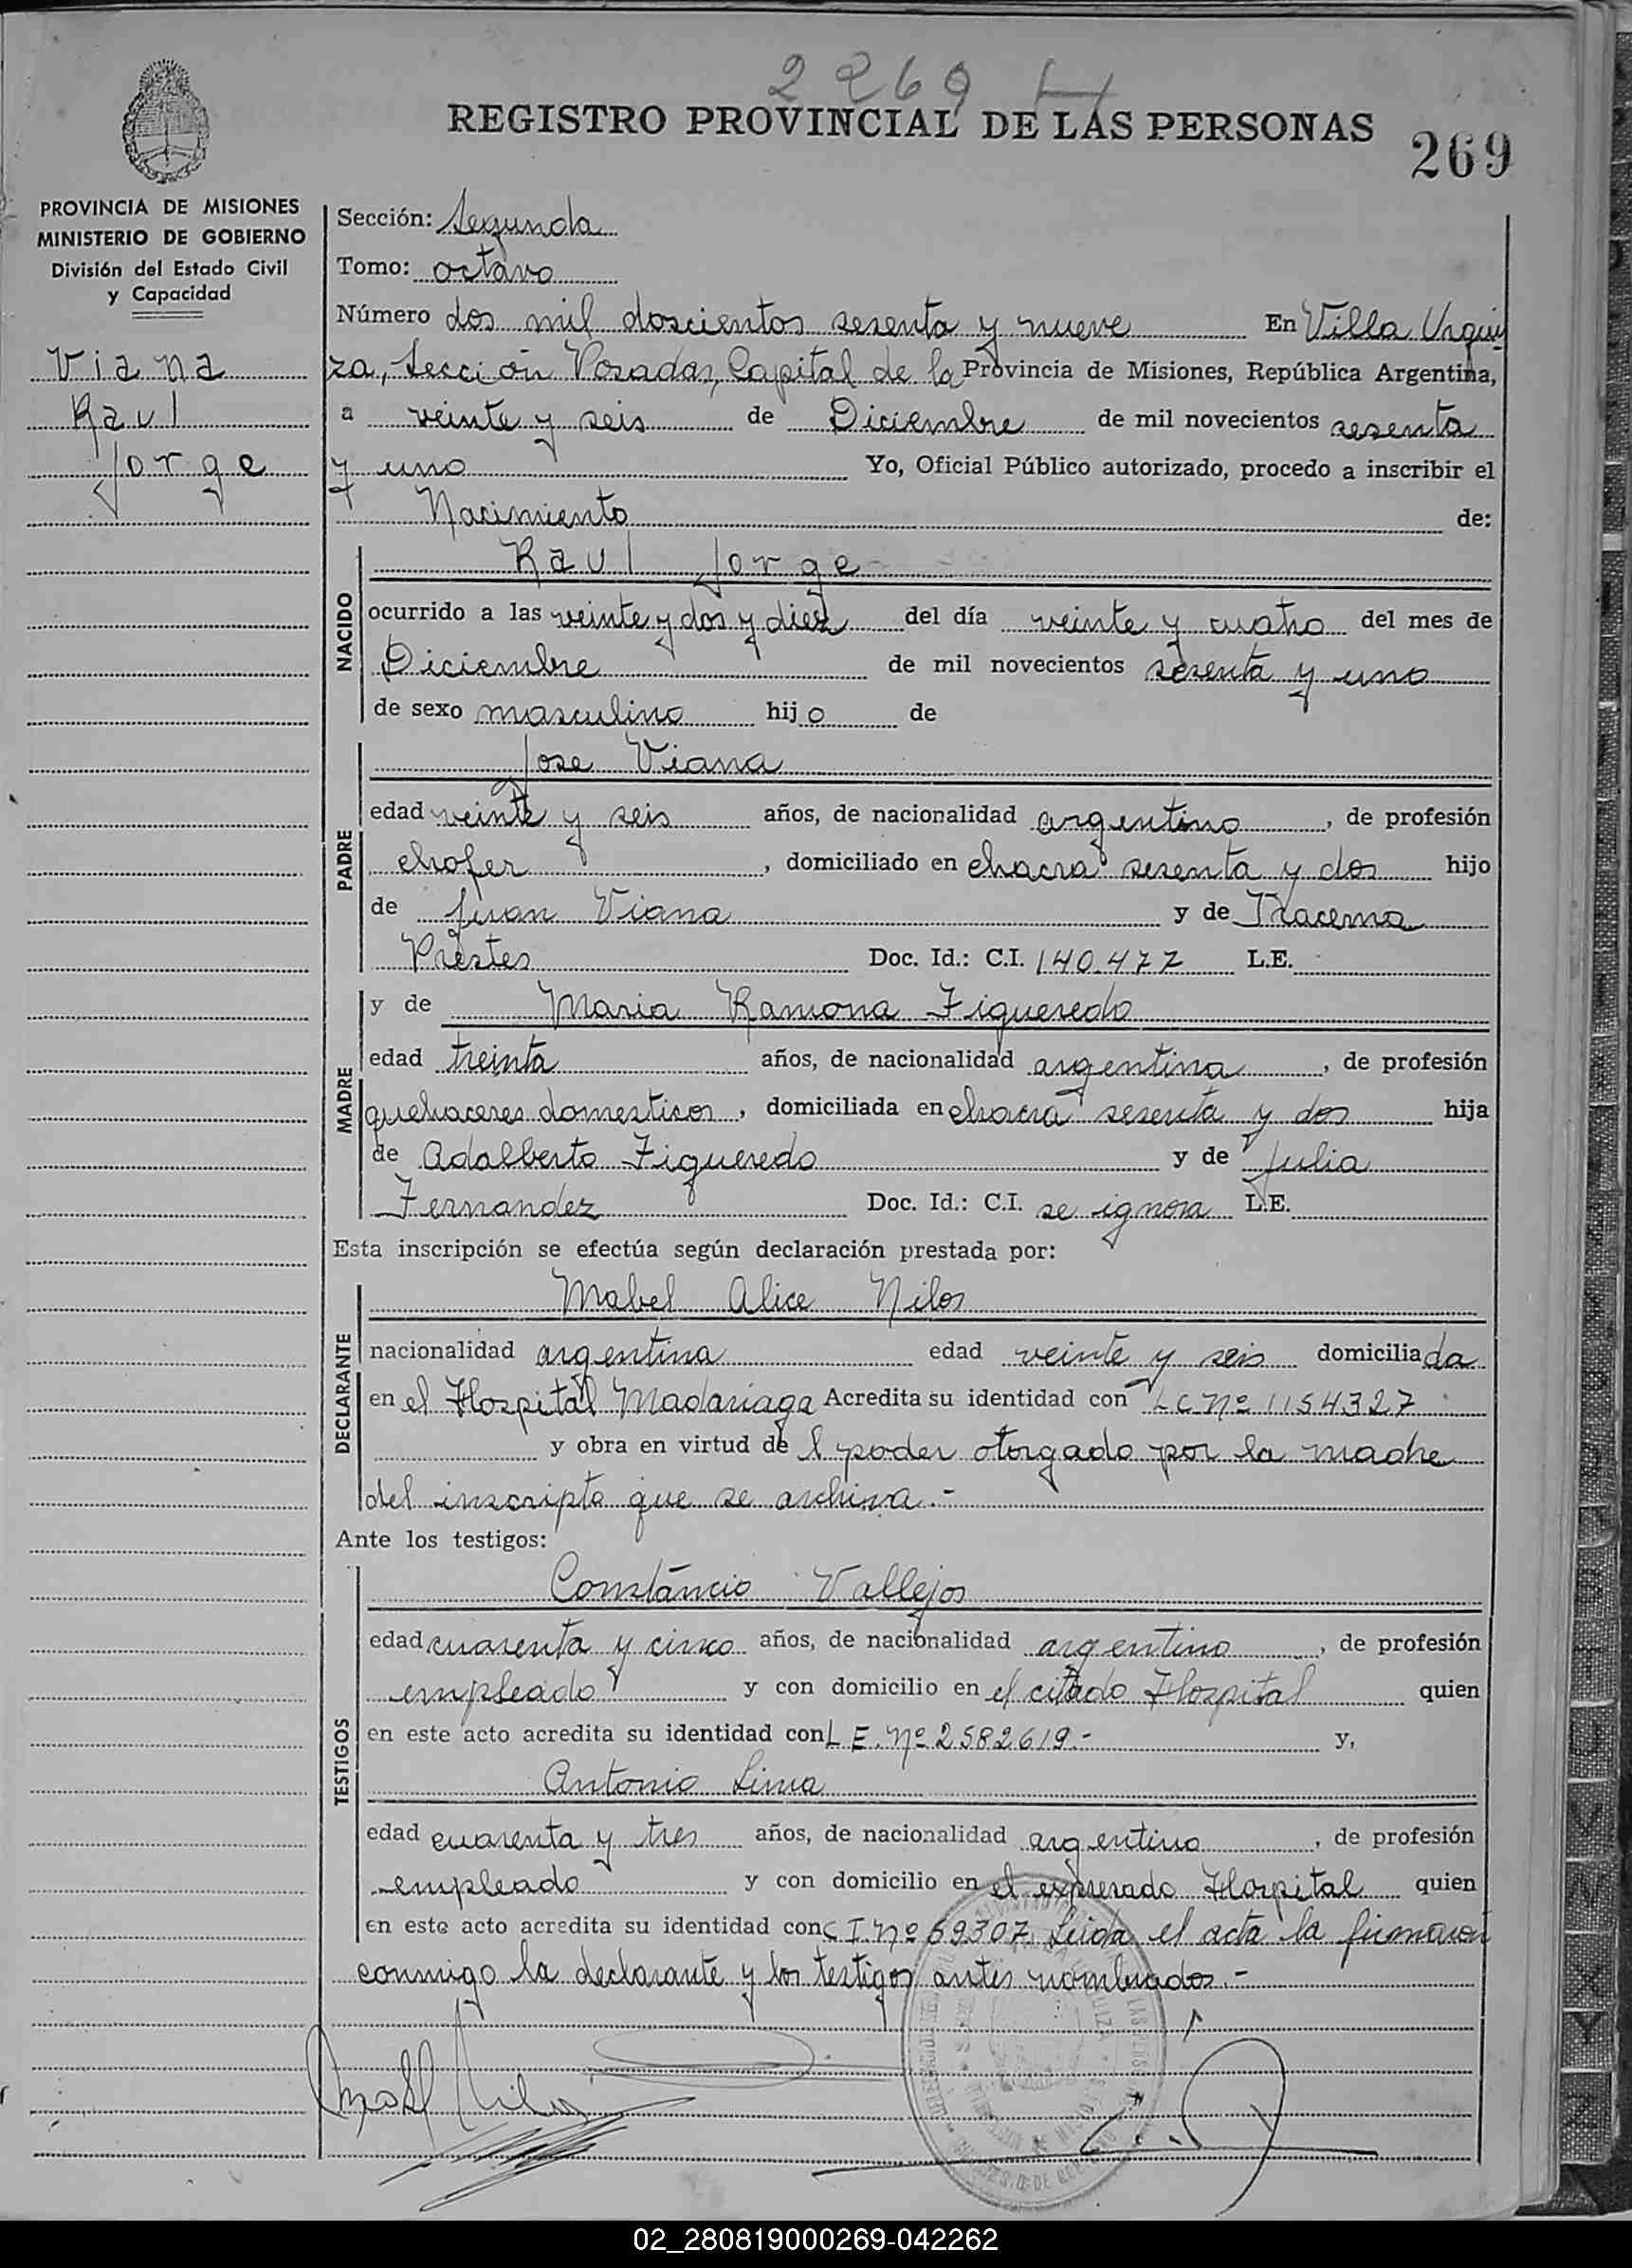 2269
REGISTRO PROVINCIAL DE LAS PERSONAS
269
PROVINCIA DE MISIONES
MINISTERIO DE GOBIERNO
División del Estado Civil
y Capacidad
Viana
Raul
Jorge
Sección: Segunda
Tomo: octavo
Número dos mil doscientos sesenta y nueve En Villa Urqui
za, Sección Posadas, Capital de la Provincia de Misiones, República Argentina,
a veinte y seis de Diciembre de mil novecientos sesenta
y uno Yo, Oficial Público autorizado, procedo a inscribir el
Nacimiento de:
NACIDO
Raul Jorge
ocurrido a las veinte y dos y diez del día veinte y cuatro del mes de
Diciembre de mil novecientos sesenta y uno
de sexo masculino hijo de
PADRE
Jose Viana
edad veinte y seis años, de nacionalidad argentino, de profesión
chofer, domiciliado en chacra sesenta y dos hijo
de Juan Viana y de Iracema
Prestes Doc. Id.: C.I. 140.477 L.E.
MADRE
y de Maria Ramona Figueredo
edad treinta años, de nacionalidad argentina, de profesión
quehaceres domesticos, domiciliada en chacra sesenta y dos hija
de Adalberto Figueredo y de Julia
Fernandez Doc. Id.: C.I. se ignora L.E.
Esta inscripción se efectúa según declaración prestada por:
DECLARANTE
Mabel Alice Nilos
nacionalidad argentina edad veinte y seis domiciliada
en el Hospital Madariaga Acredita su identidad con L C Nº 1154327
y obra en virtud del poder otorgado por la madre
del inscripto que se archiva.-
Ante los testigos:
TESTIGOS
Constáncio Vallejos
edad cuarenta y cinco años, de nacionalidad argentino, de profesión
empleado y con domicilio en el citado Hospital quien
en este acto acredita su identidad con L E. Nº 2582619.- y,
Antonio Lima
edad cuarenta y tres años, de nacionalidad argentino, de profesión
empleado y con domicilio en el expresado Hospital quien
en este acto acredita su identidad con C I. Nº 69307. Leida el acta la firmaron
conmigo la declarante y los testigos antes nombrados.-
02_280819000269-042262